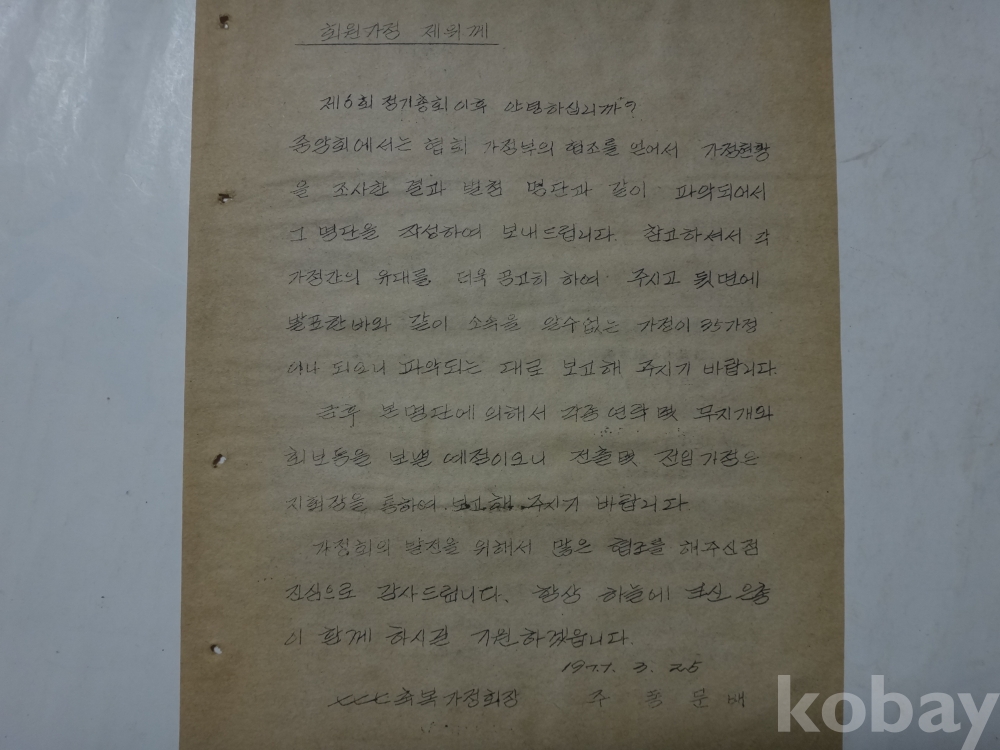 회원가정 제위께
제6회 정기총회 이후 안녕하십니까?
중앙회에서는 협회 가정부의 협조를 얻어서 가정현황
을 조사한 결과 별첨 명단과 같이 파악되어서
그 명단을 작성하여 보내드립니다. 참고하셔서 각
가정간의 유대를 더욱 공고히 하여 주시고 뒷면에
발표한바와 같이 소속을 알수없는 가정이 35가정
이나 되오니 파악되는 대로 보고해 주시기 바랍니다.
금후 본 명단에 의해서 각종 연락 및 무지개와
회보등을 보낼 예정이오니 전출 및 전입 가정은
지회장을 통하여 보고해 주시기 바랍니다.
가정회의 발전을 위해서 많은 협조를 해주신점
진심으로 감사드립니다. 항상 하늘에 크신 은총
이 함께 하시길 기원하겠읍니다.
1977. 3. 25
축복가정회장 주 동 문 배
kobay